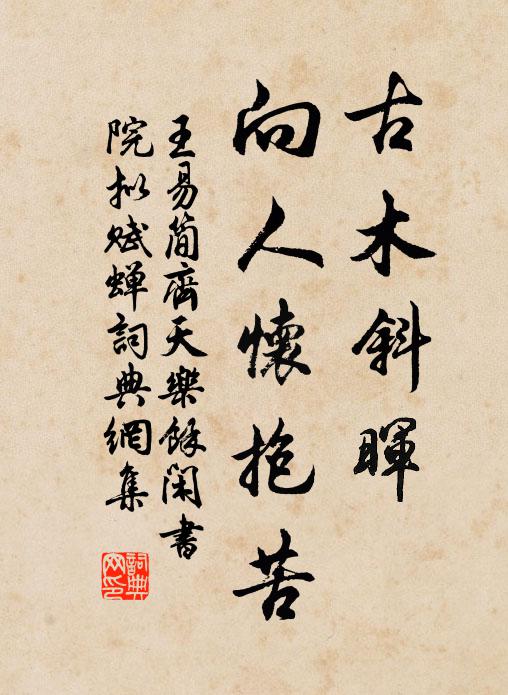 古木斜暉
向人懷抱苦
王易簡齊天樂餘閑書
院拟赋蝉詞典網集
詞典
网印